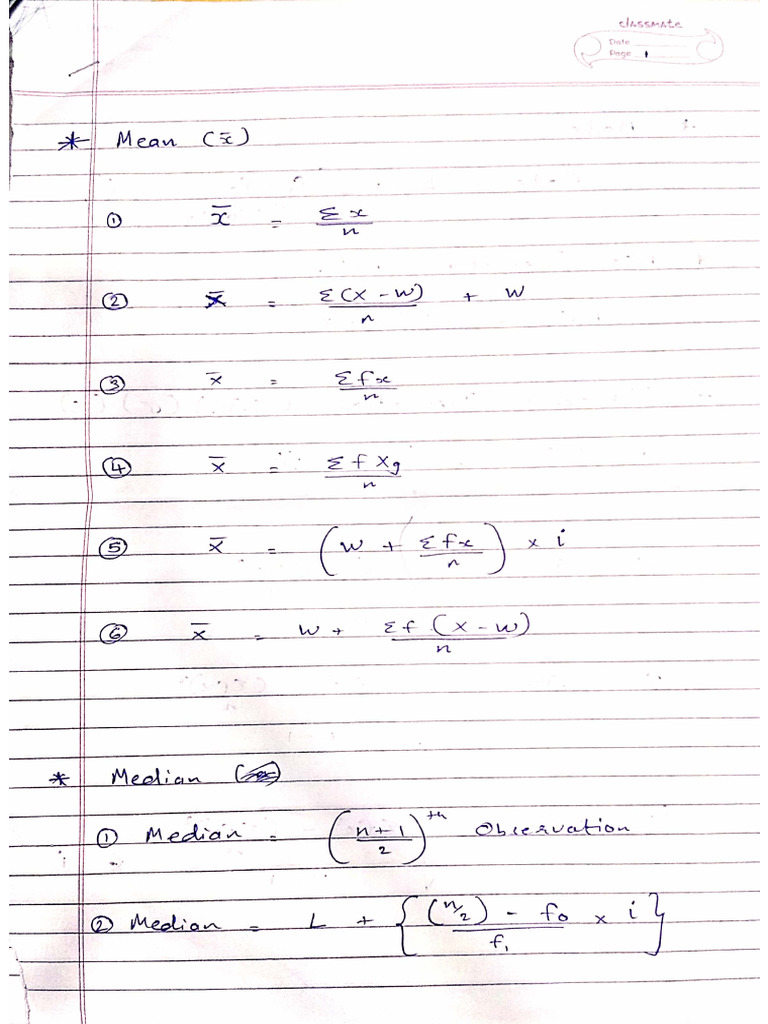 classmate
Date
Page 1
* Mean (x̄)
① x̄ = Σx/n
② x̄ = Σ(x - w)/n + w
③ x̄ = Σfx/n
④ x̄ = Σf Xg/n
⑤ x̄ = (w + Σfx/n) × i
⑥ x̄ = w + Σf (x - w)/n
* Median
① Median = (n+1/2)th Observation
② Median = L + {(n/2) - f0/f1 × i}